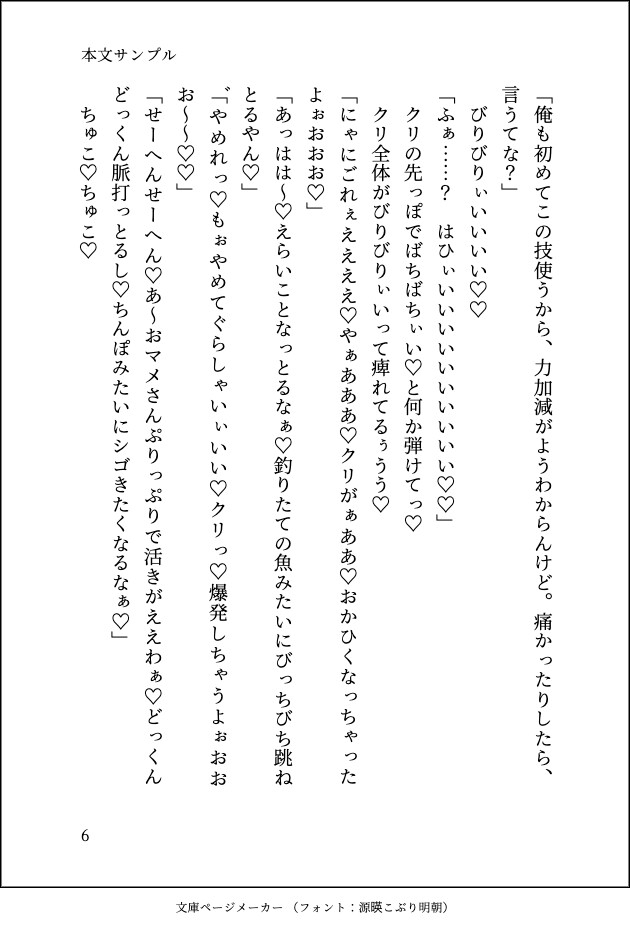 本文サンプル
「俺も初めてこの技使うから、力加減がようわからんけど。痛かったりしたら、
言うてな?」
びりびりぃいいいい♡♡
「ふぁ……?　はひぃいいいいいいいいいい♡♡」
クリの先っぽでばちばちぃい♡と何か弾けてっ♡
クリ全体がびりびりぃいって痺れてるぅうう♡
「にゃにごれぇえええ♡やぁあああ♡クリがぁああ♡おかひくなっちゃった
よぉおおお♡」
「あっはは〜♡えらいことなっとるなぁ♡釣りたての魚みたいにびっちびち跳ね
とるやん♡」
「゛やめれっ♡もぉやめてぐらしゃいぃいい♡クリっ♡爆発しちゃうよぉおお
お〜〜♡♡」
「せーへんせーへん♡あ〜おマメさんぷりっぷりで活きがええわぁ♡どっくん
どっくん脈打っとるし♡ちんぽみたいにシゴきたくなるなぁ♡」
ちゅこ♡ちゅこ♡
6
文庫ページメーカー（フォント：源暎こぶり明朝）